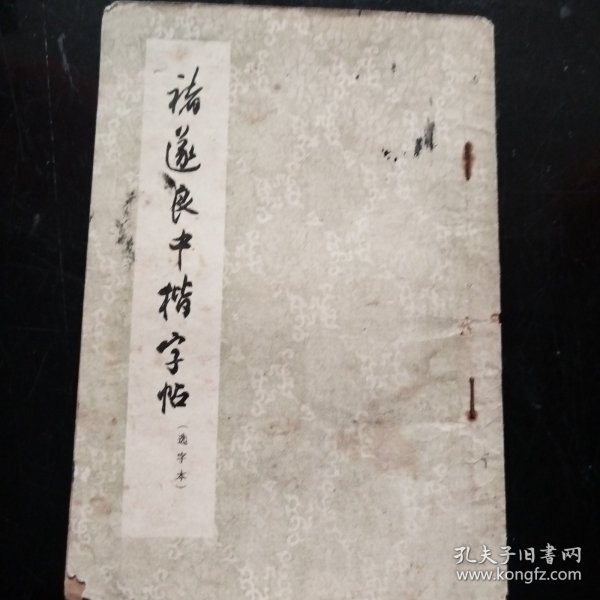 褚遂良中楷字帖
（选字本）
孔夫子旧书网
www.kongfz.com